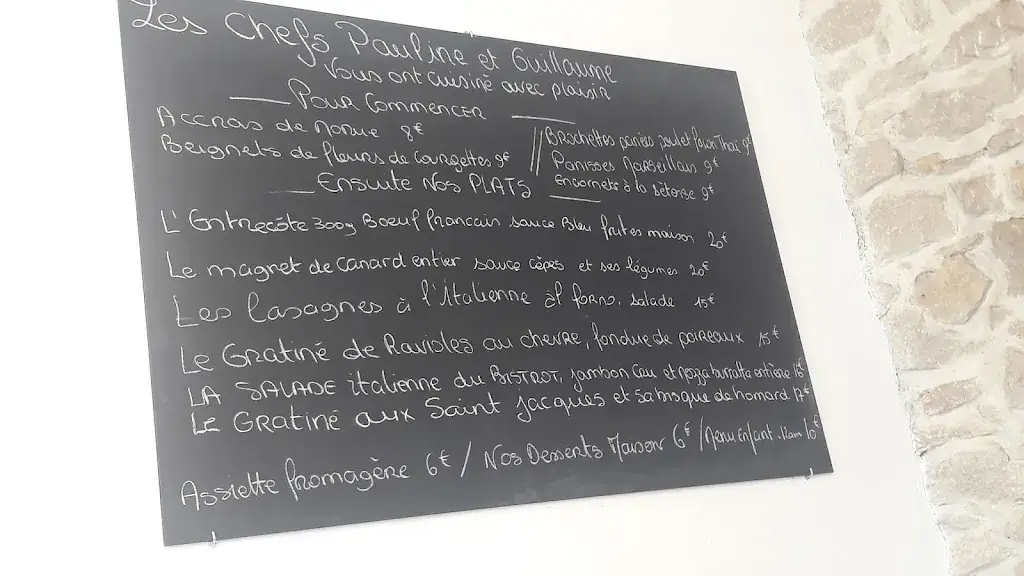 Les Chefs Pauline et Guillaume
Vous ont cuisiné avec plaisir
Pour Commencer
Accras de Morue 8€
Beignets de fleurs de Courgettes 9€
Brochettes panées poulet façon Thaï 9€
Panisses Marseillais 9€
Encornets à la sétoise 9€
Ensuite Nos PLATS
L'Entrecôte 300g Boeuf francais sauce Bleu frites maison 20€
Le magret de Canard entier sauce cèpes et ses légumes 20€
Les lasagnes à l'italienne al forno, salade 15€
Le Gratiné de Ravioles au chevre, fondue de poireaux 15€
LA SALADE italienne du BISTROT, jambon cru et mozza burratta entière 16€
LE GRATINÉ aux Saint Jacques et sa bisque de homard 17€
Assiette fromagère 6€ / Nos Desserts Maison 6€ / Menu Enfant -12ans 10€